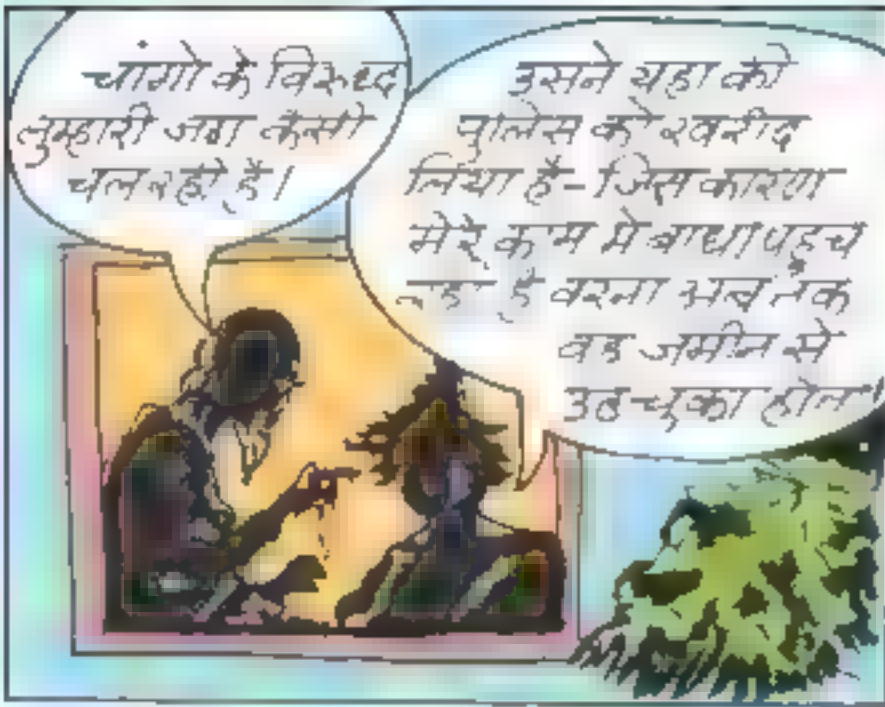 चांगो के विरुध्द
तुम्हारी जंग कैसी
चल रही है।
उसने यहां की
पुलिस को खरीद
लिया है-जिस कारण
मेरे काम में बाधा पहुंच
रही है वरना अब तक
वह जमीन से
उठ चुका होता।